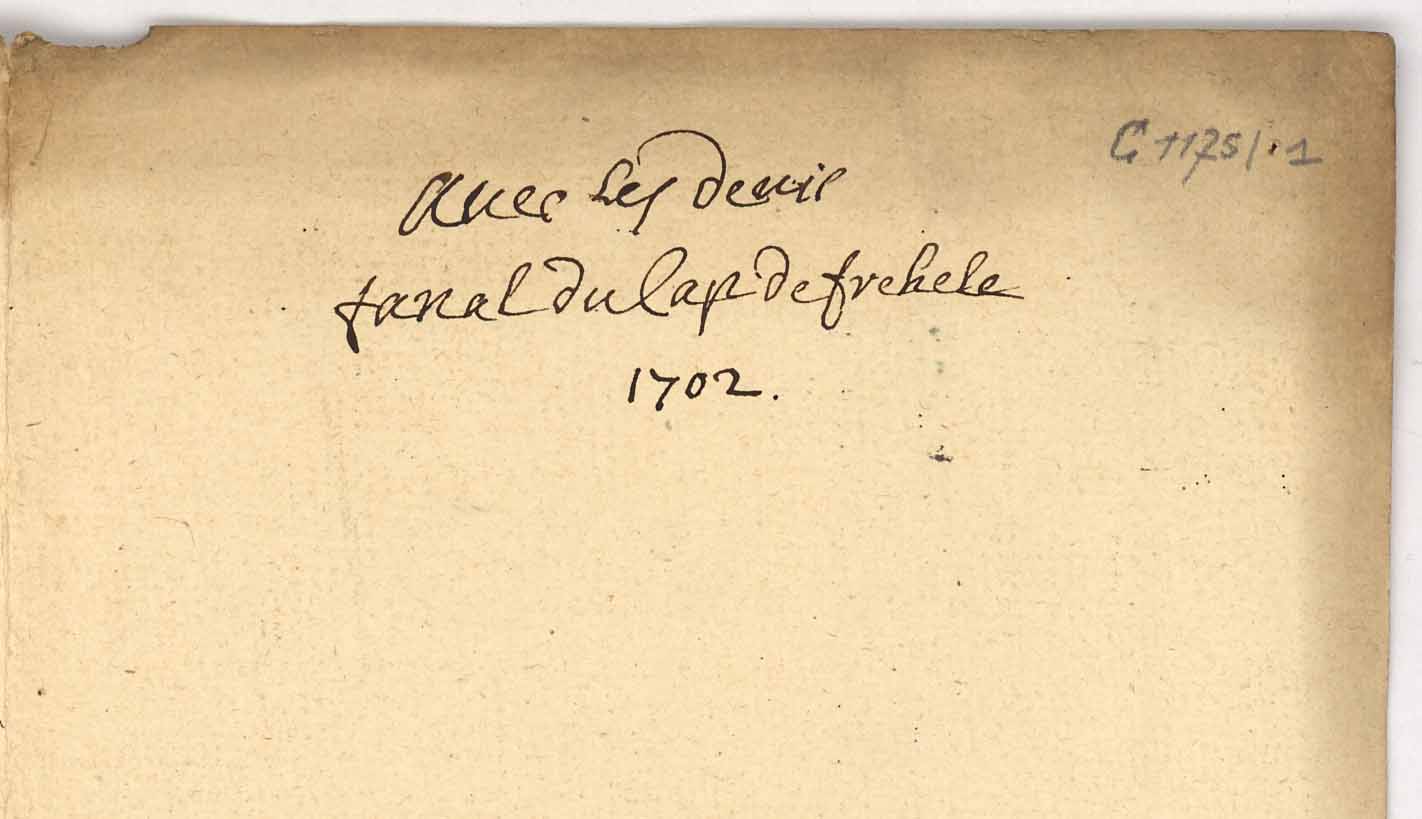 C 1175/.1
avec les devis
fanal du Cap de frehele
1702.